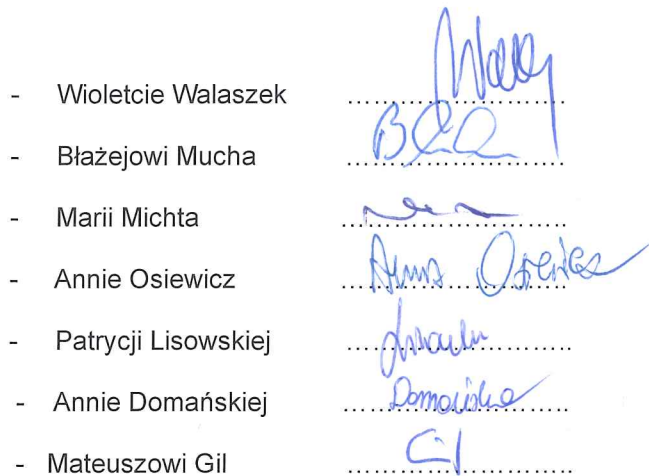 - Wioletcie Walaszek ........................
- Błażejowi Mucha ........................
- Marii Michta ........................
- Annie Osiewicz ........................ Anna Osiewicz
- Patrycji Lisowskiej ........................
- Annie Domańskiej ........................ Domańska
- Mateuszowi Gil ........................ Gil